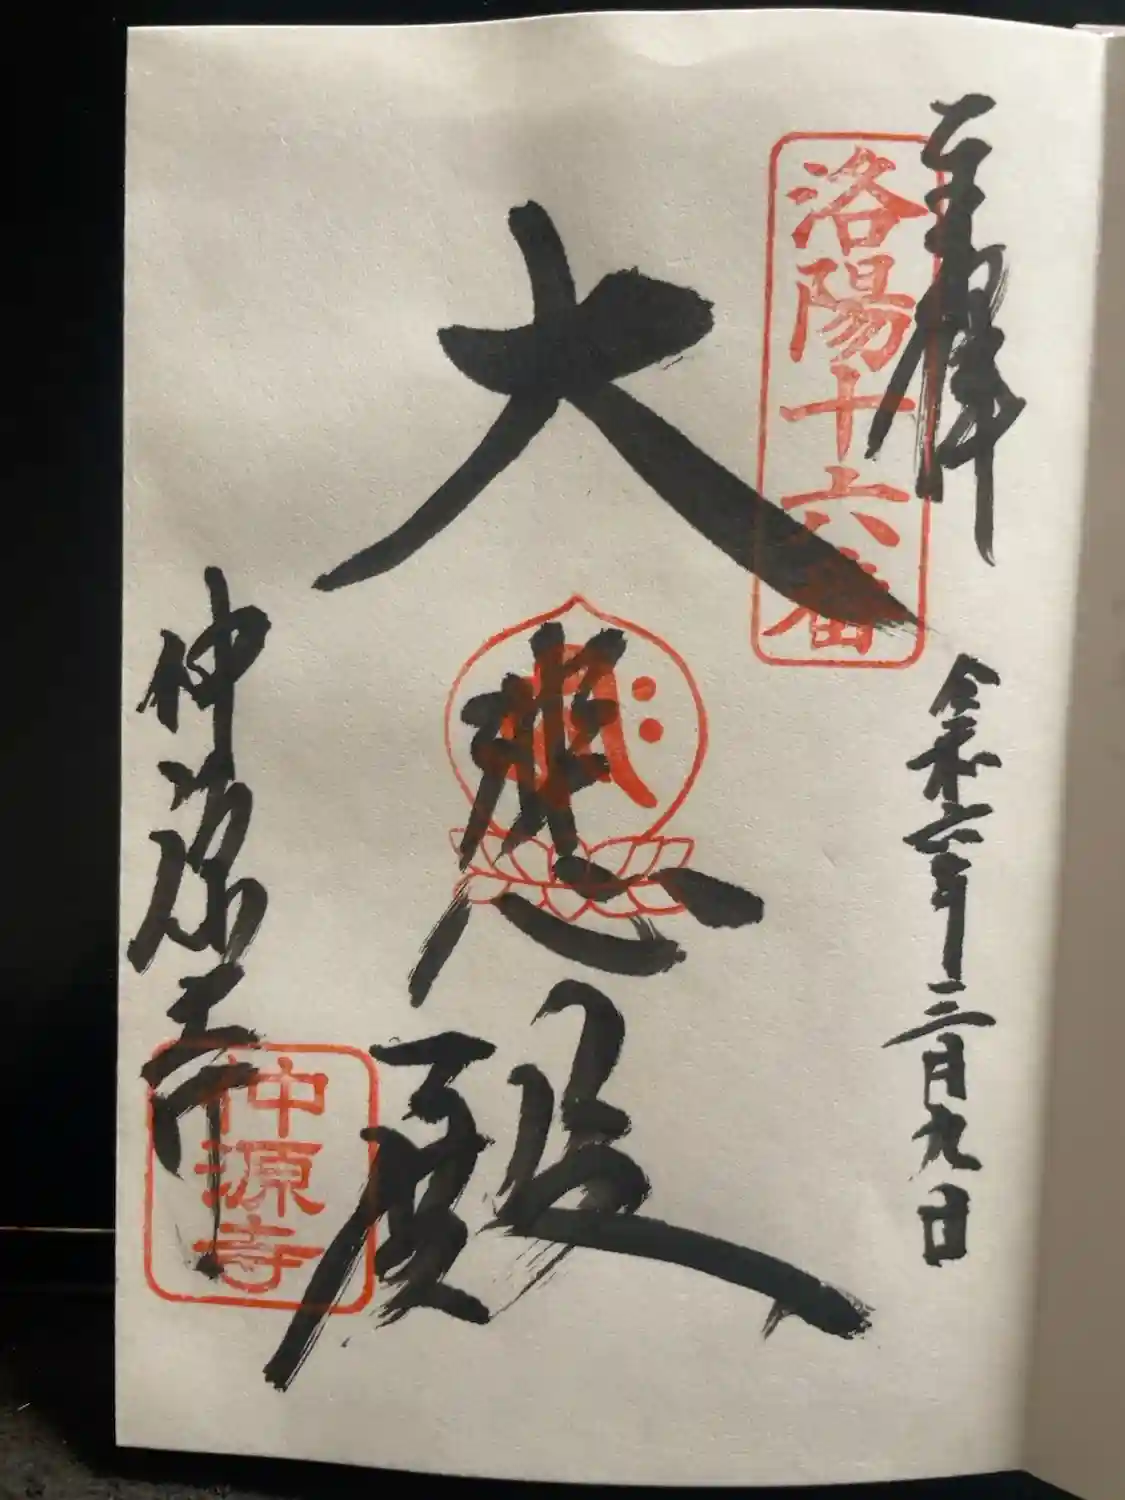 奉拝
洛陽十六番
令和六年三月九日
大悲殿
仲源寺
仲源寺